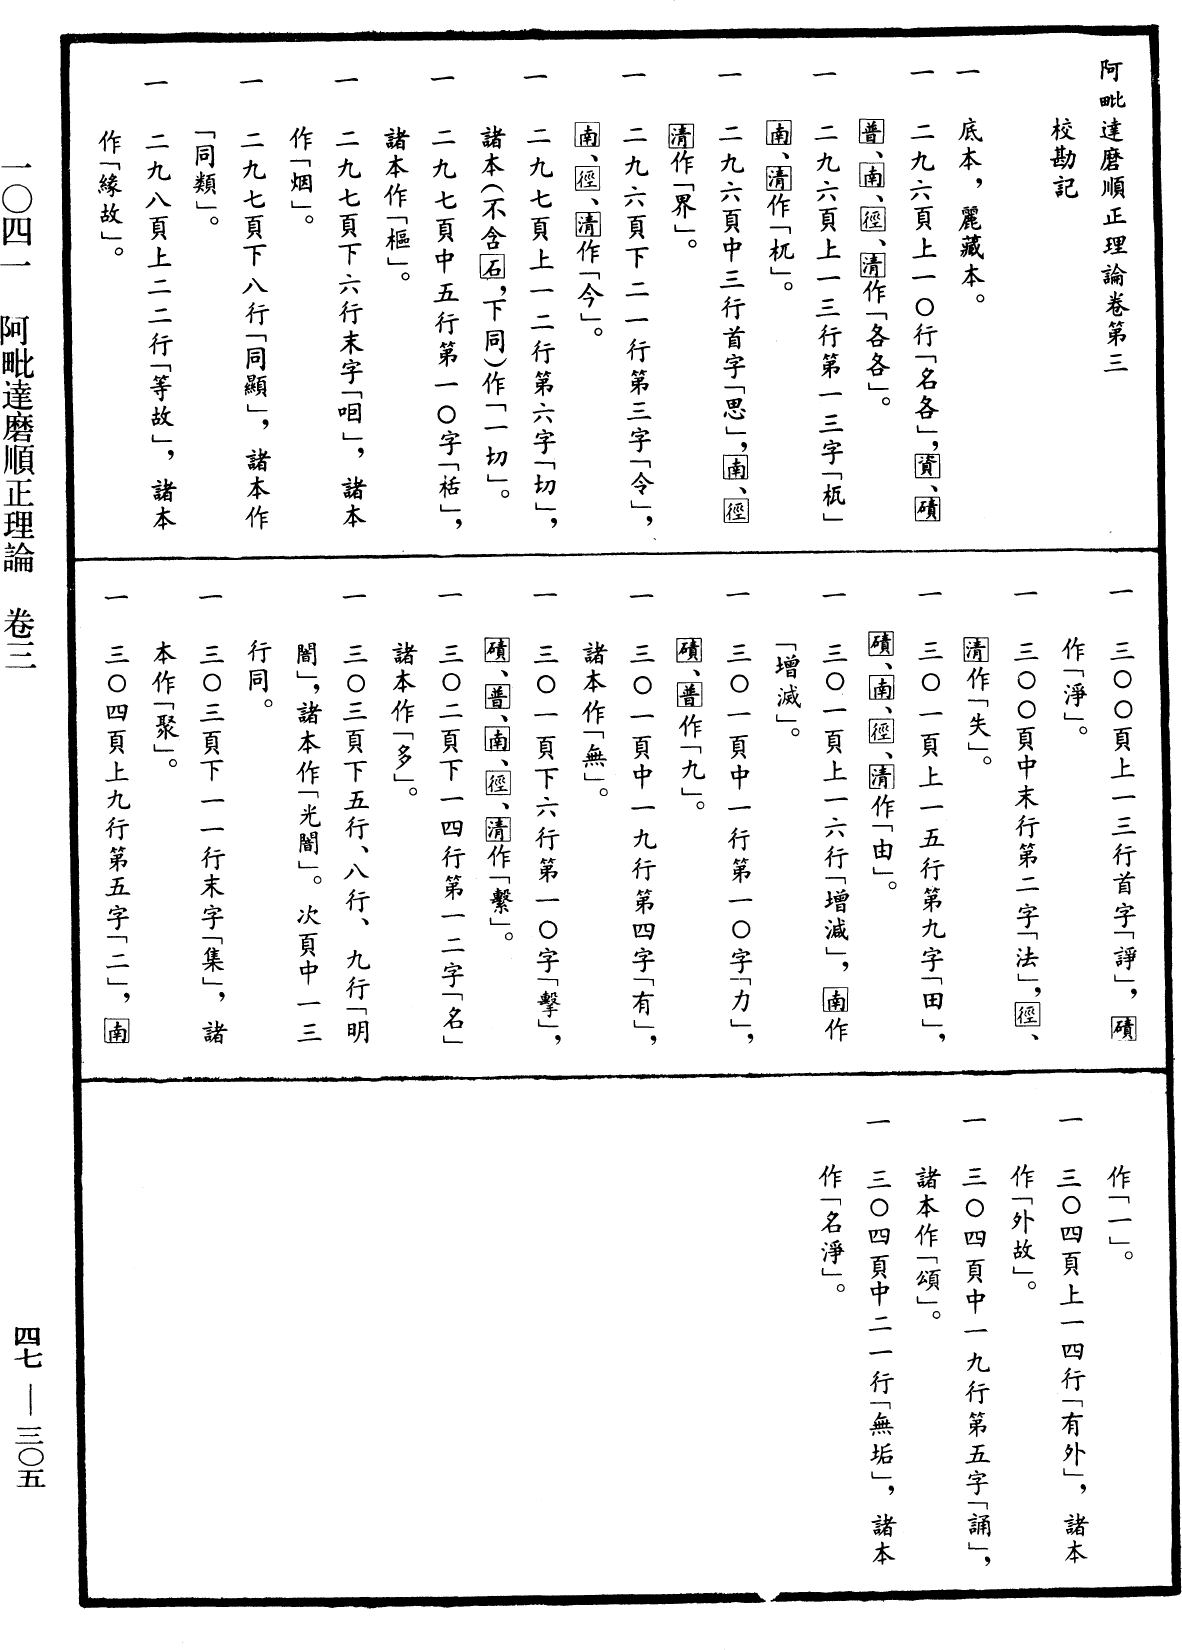 阿毗達磨順正理論卷第三
校勘記
一　底本，麗藏本。
一　二九六頁上一〇行「名各」，資、磧
普、南、徑、清作「各各」。
一　二九六頁上一三行第一三字「柢」
南、清作「杌」。
一　二九六頁中三行首字「思」，南、徑
清作「界」。
一　二九六頁下二一行第三字「令」，
南、徑、清作「今」。
一　二九七頁上一二行第六字「切」，
諸本（不含石，下同）作「一切」。
一　二九七頁中五行第一〇字「栝」，
諸本作「樞」。
一　二九七頁下六行末字「咽」，諸本
作「烟」。
一　二九七頁下八行「同顯」，諸本作
「同類」。
一　二九八頁上二二行「等故」，諸本
作「緣故」。
一　三〇〇頁上一三行首字「諍」，磧
作「淨」。
一　三〇〇頁中末行第二字「法」，徑、
清作「失」。
一　三〇一頁上一五行第九字「田」，
磧、南、徑、清作「由」。
一　三〇一頁上一六行「增減」，南作
「增滅」。
一　三〇一頁中一行第一〇字「力」，
磧、普作「九」。
一　三〇一頁中一九行第四字「有」，
諸本作「無」。
一　三〇一頁下六行第一〇字「擊」，
磧、普、南、徑、清作「繫」。
一　三〇二頁下一四行第一二字「名」
諸本作「多」。
一　三〇三頁下五行、八行、九行「明
闇」，諸本作「光闇」。次頁中一三
行同。
一　三〇三頁下一一行末字「集」，諸
本作「聚」。
一　三〇四頁上九行第五字「二」，南
作「一」。
一　三〇四頁上一四行「有外」，諸本
作「外故」。
一　三〇四頁中一九行第五字「誦」，
諸本作「頌」。
一　三〇四頁中二一行「無垢」，諸本
作「名淨」。
一〇四一　阿毗達磨順正理論　卷三
四七—三〇五